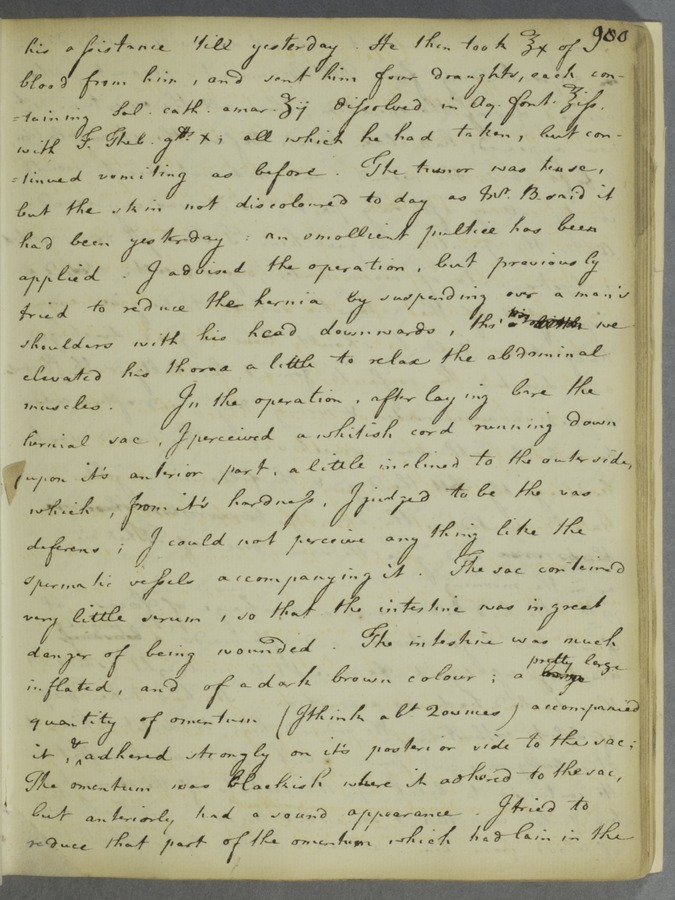 900
his assistance 'till yesterday. He then took ℥x of
blood from him, and sent him four draughts, each con-
=taining Sal. cath. amar. ʒij dissolved in Aq. font. ℥iss.
with T. Theb. gtt. x; all which he had taken, but con-
=tinued vomiting as before. The tumor was tense,
but the skin not discoloured to day as Mr. B. said it
had been yesterday: an emollient pultice has been
applied. I advised the operation, but previously
tried to reduce the hernia by suspending over a man's
shoulders with his head downwards, this we
elevated his thorax a little to relax the abdominal
muscles. In the operation, after laying bare the
hernial sac, I perceived a whitish cord running down
upon it's anterior part, a little inclined to the outer side,
which, from it's hardness, I judged to be the vas
deferens; I could not perceive any thing like the
spermatic vessels accompanying it. The sac contained
very little serum, so that the intestine was in great
danger of being wounded. The intestine was much
inflated, and of a dark brown colour; a pretty large
quantity of omentum (I think abt 2 ounces) accompanied
it, & adhered strongly on it's posterior side to the sac;
The omentum was blackish where it adhered to the sac,
but anteriorly had a sound appearance. I tried to
reduce that part of the omentum which had lain in the